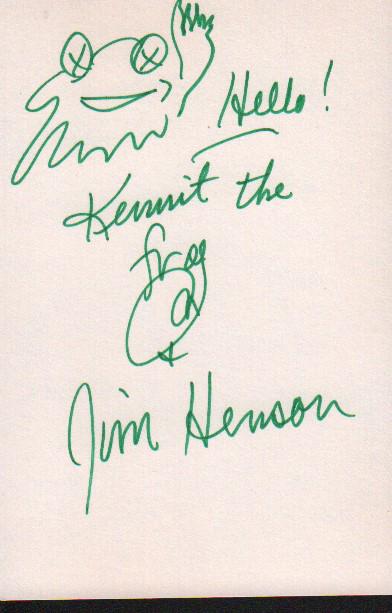 Hello!
Kermit the
frog
&
Jim Henson